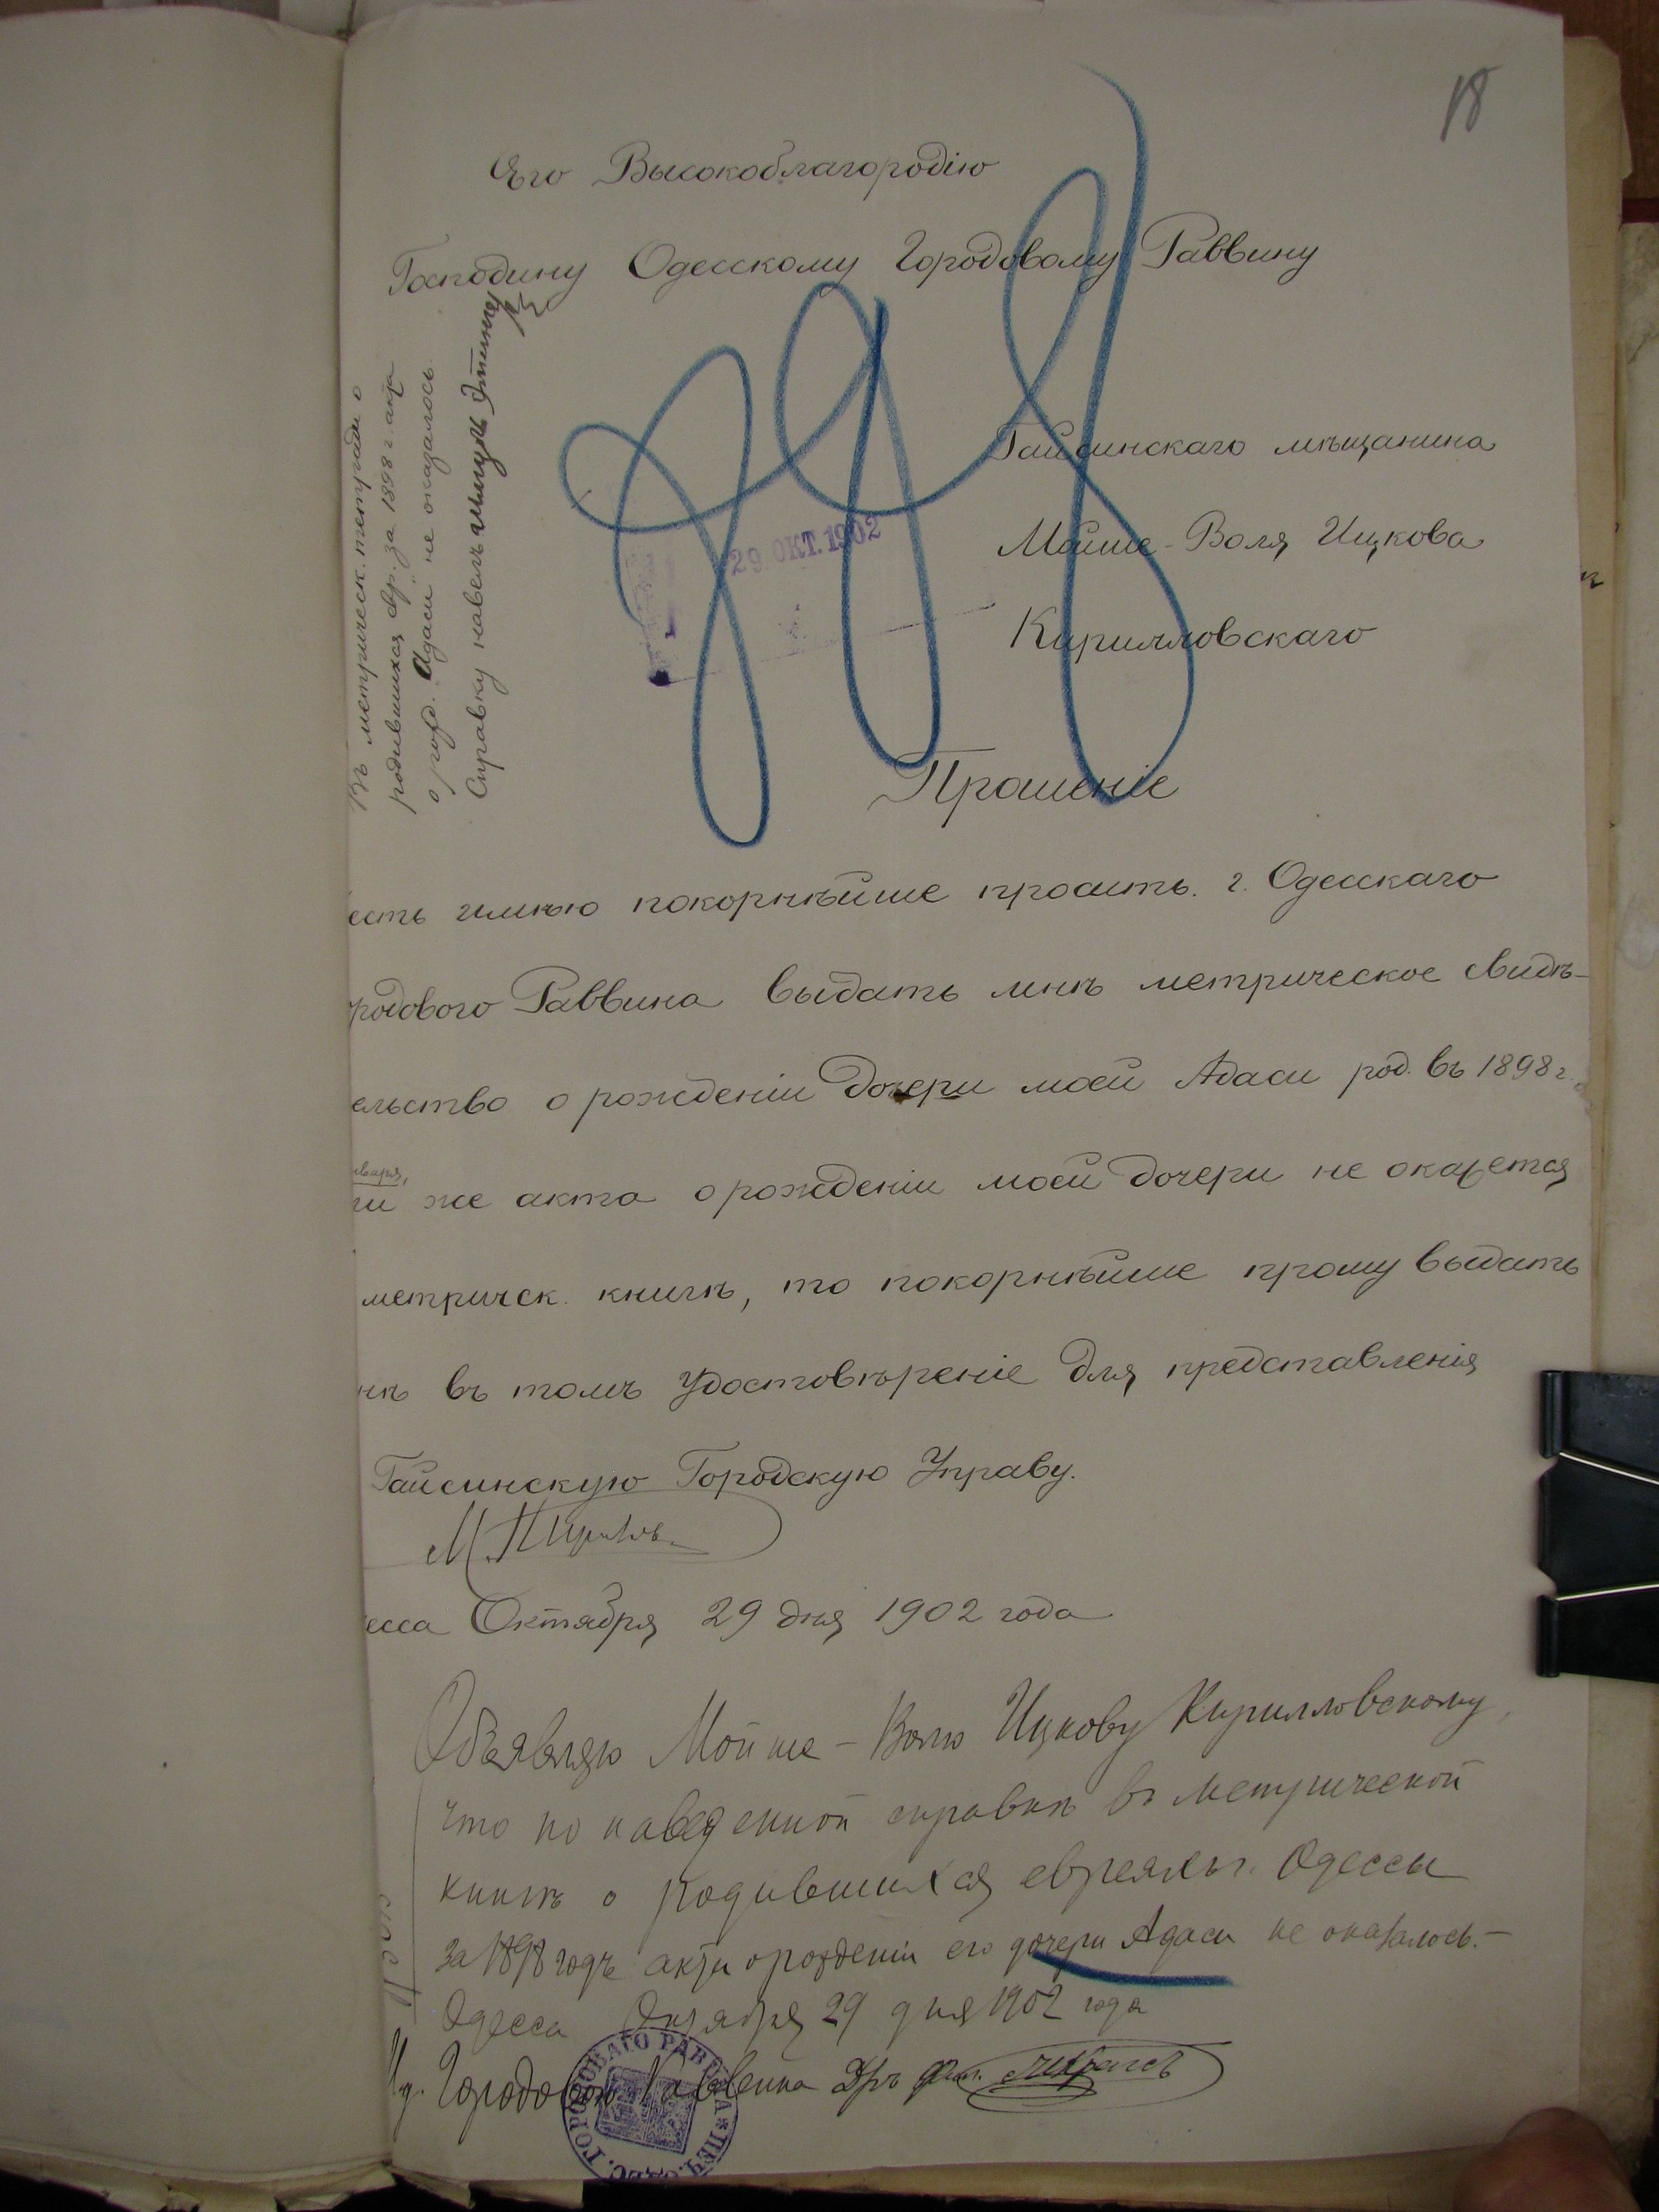 18
Его Высокоблагородію
Господину Одесскому Городовому Раввину
Въ метрическ. тетради о
родившихся евр. за 1898 г. акта
о рожд. Адаси не оказалось.
Справку навелъ
29 ОКТ. 1902
Гайсинскаго мѣщанина
Мойше-Воля Ицкова
Кирилловскаго
Прошеніе
есть имѣю покорнѣйше просить г. Одесскаго
родового Раввина выдать мнѣ метрическое свидѣ-
ельство о рожденіи дочери моей Адаси род. въ 1898 г.
нваря,
ли же акта о рожденіи моей дочери не окажется
метрическ. книгѣ, то покорнѣйше прошу выдать
нѣ въ томъ удостовѣреніе для представленія
Гайсинскую Городскую Управу.
есса Октября 29 дня 1902 года
Объявляю Мойше-Волю Ицкову Кирилловскому,
что по наведенной справкѣ въ метрической
книгѣ о родившихся евреяхъ г. Одессы
за 1898 годъ акта о рожденіи его дочери Адаси не оказалось.-
Одесса Октября 29 дня 1902 года
Городового Раввина Д-ръ Фил.
ГОРОДОВАГО РАВВИНА * ПЕЧ. ОДЕС.